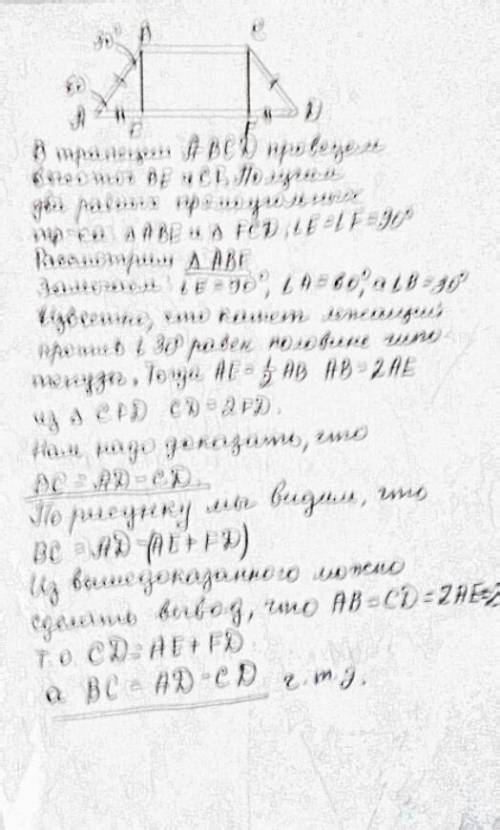 30°
B
C
60
A
E
F
D
В трапеции ABCD проведем
высоты BE и CF. Получим
два равных прямоугольных
тр-ка △ABE и △FCD, ∠E=∠F=90°
Рассмотрим △ABE
Замечаем ∠E=90°, ∠A=60°, а ∠B=30°
Известно, что катет лежащий
против ∠30° равен половине гипо
тенузы. Тогда AE=½AB AB=2AE
из △CFD CD=2FD.
Нам надо доказать, что
BC=AD-CD.
По рисунку мы видим, что
BC=AD-(AE+FD)
Из вышедоказанного можно
сделать вывод, что AB=CD=2AE=2
т.о CD=AE+FD.
а BC=AD-CD ч.т.д.